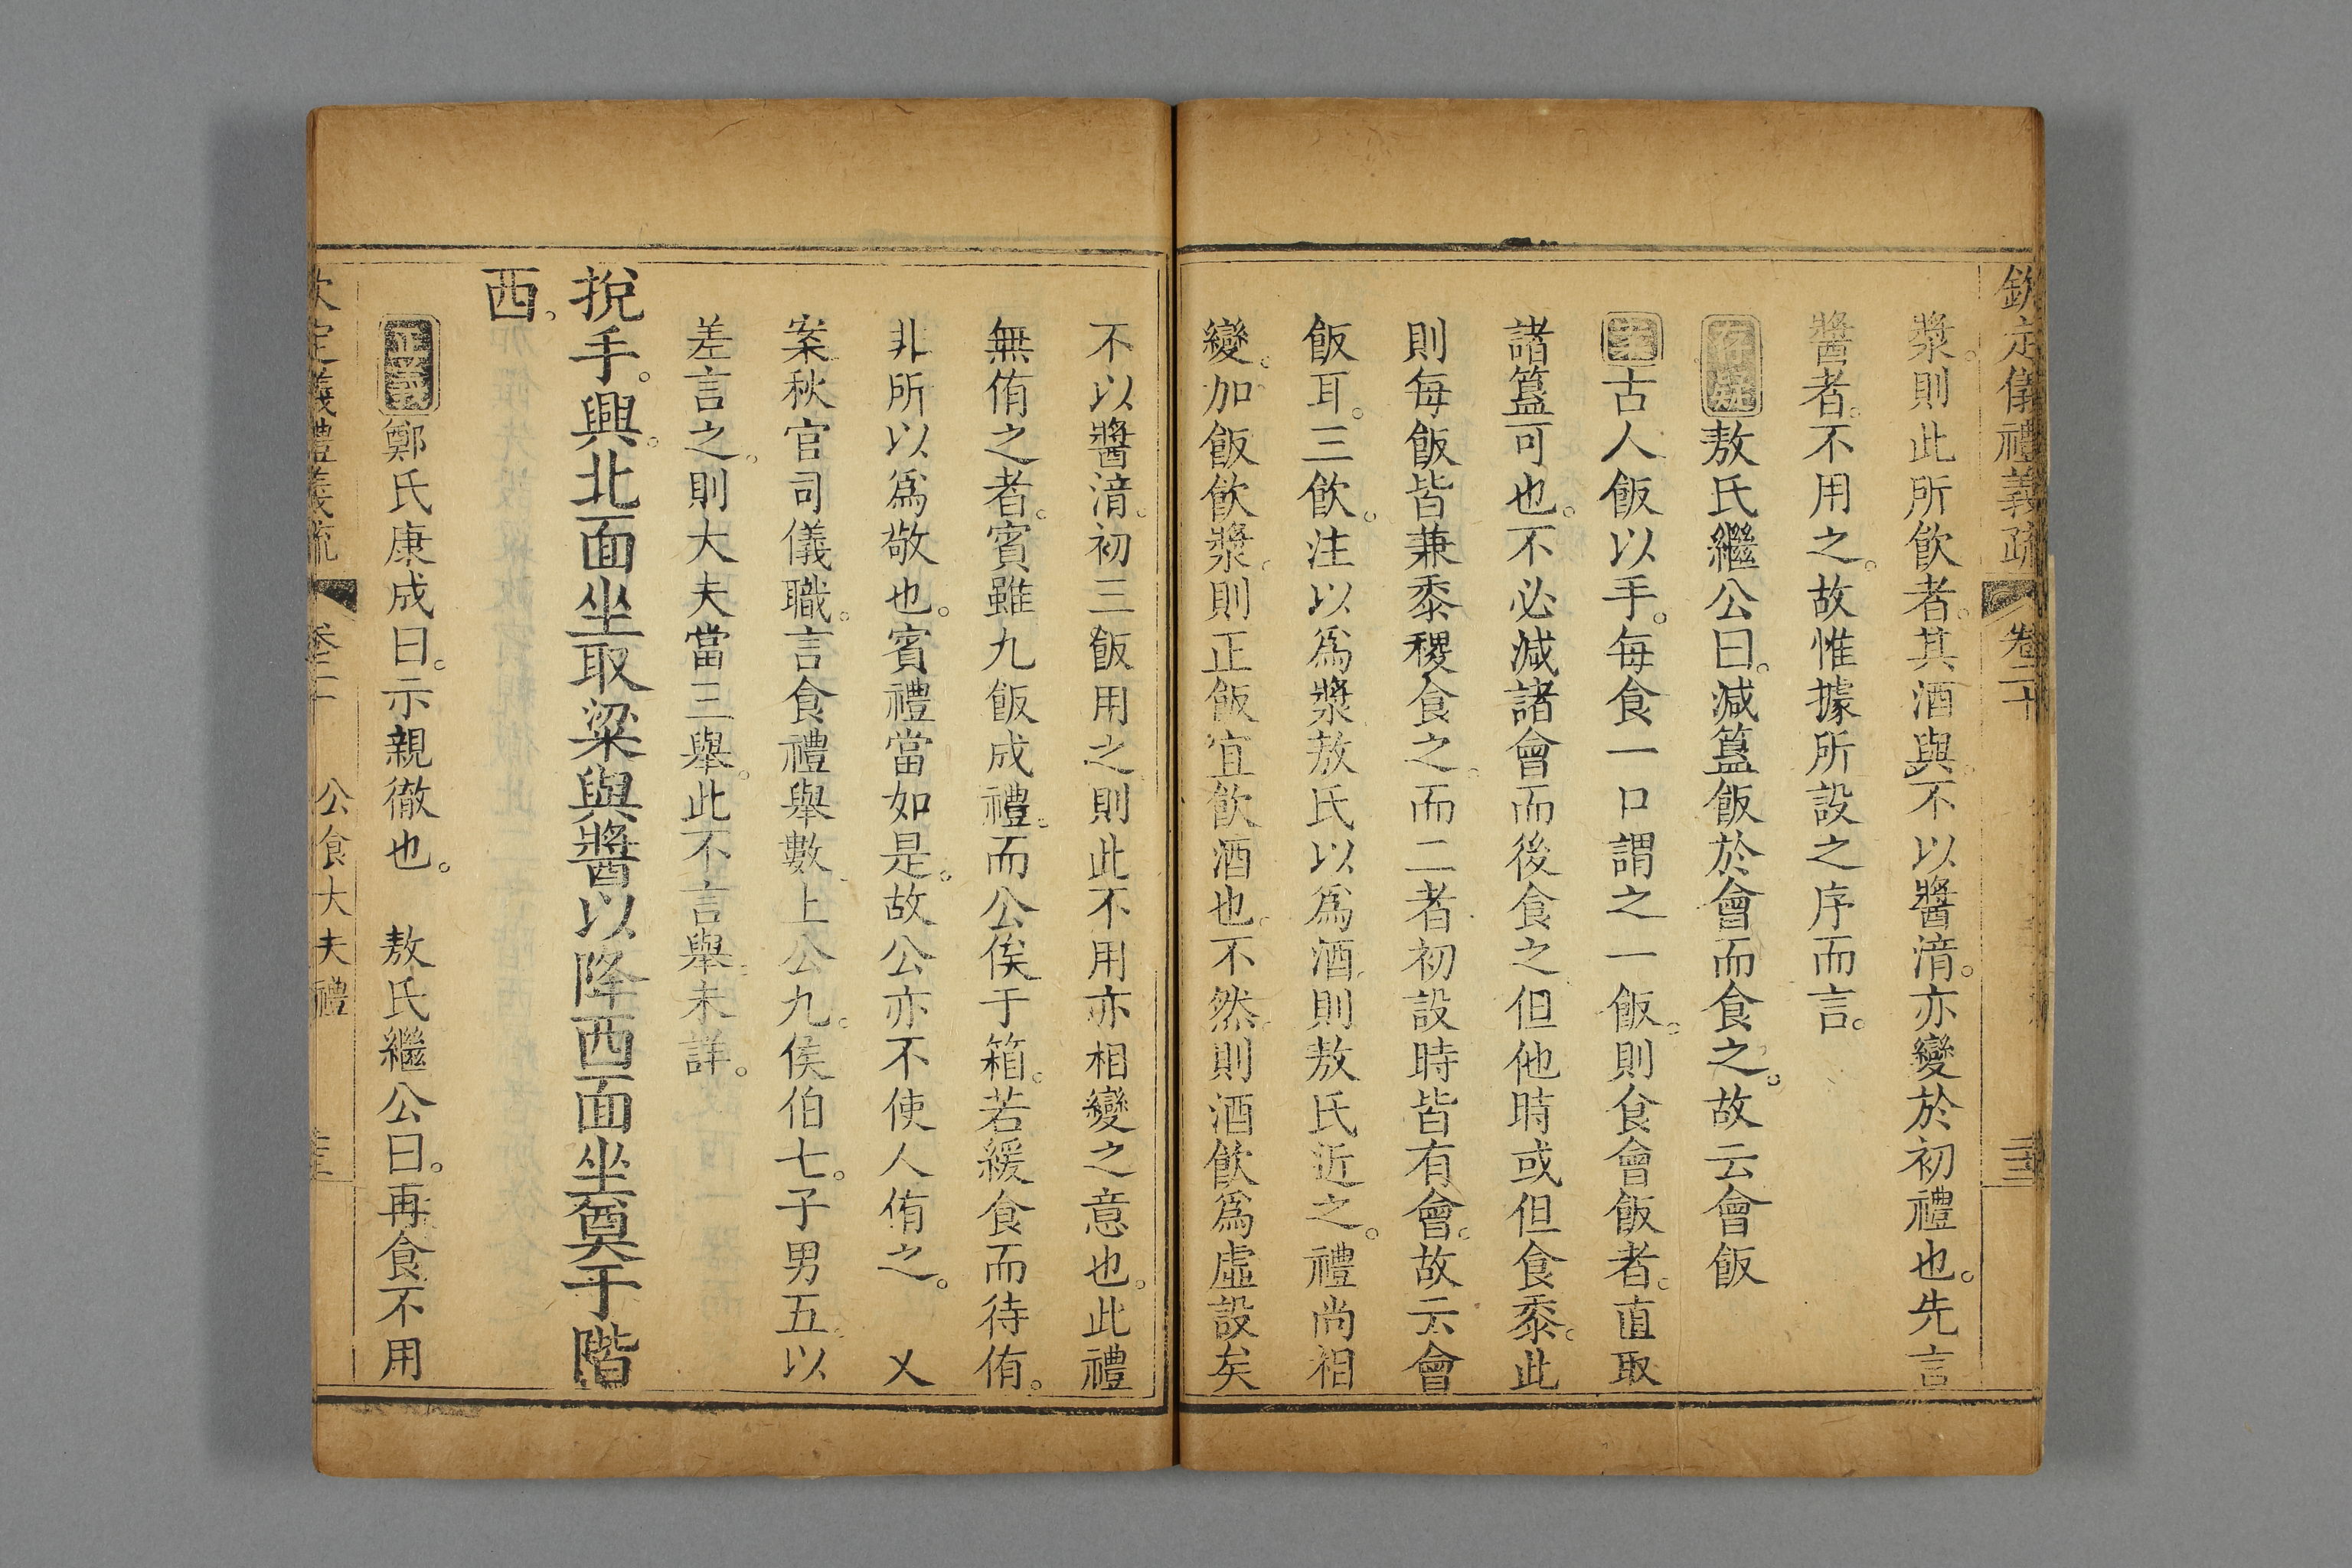 欽定儀禮義疏 卷二十
漿。則此所飲者。其酒與。不以醬湆。亦變於初禮也。先言
醬者。不用之。故惟據所設之序而言。
存疑敖氏繼公曰。減簋飯於會而食之。故云會飯
案古人飯以手。每食一口謂之一飯。則食會飯者。直取
諸簋可也。不必減諸會而後食之。但他時或但食黍。此
則每飯皆兼黍稷食之。而二者初設時皆有會。故云會
飯耳。三飲。注以爲漿。敖氏以爲酒。則敖氏近之。禮尚相
變。加飯飲漿。則正飯宜飲酒也。不然。則酒飲爲虛設矣
不以醬湆。初三飯用之。則此不用。亦相變之意也。此禮
無侑之者。賓雖九飯成禮。而公俟于箱。若緩食而待侑。
非所以爲敬也。賓禮當如是。故公亦不使人侑之。 又
案秋官司儀職。言食禮舉數。上公九。侯伯七。子男五。以
差言之。則大夫當三舉。此不言舉。未詳。
挩手。興。北面坐取粱與醬以降西面坐奠于階
西。
正義鄭氏康成曰。示親徹也。 敖氏繼公曰。再食不用
欽定儀禮義疏 卷二十 公食大夫禮